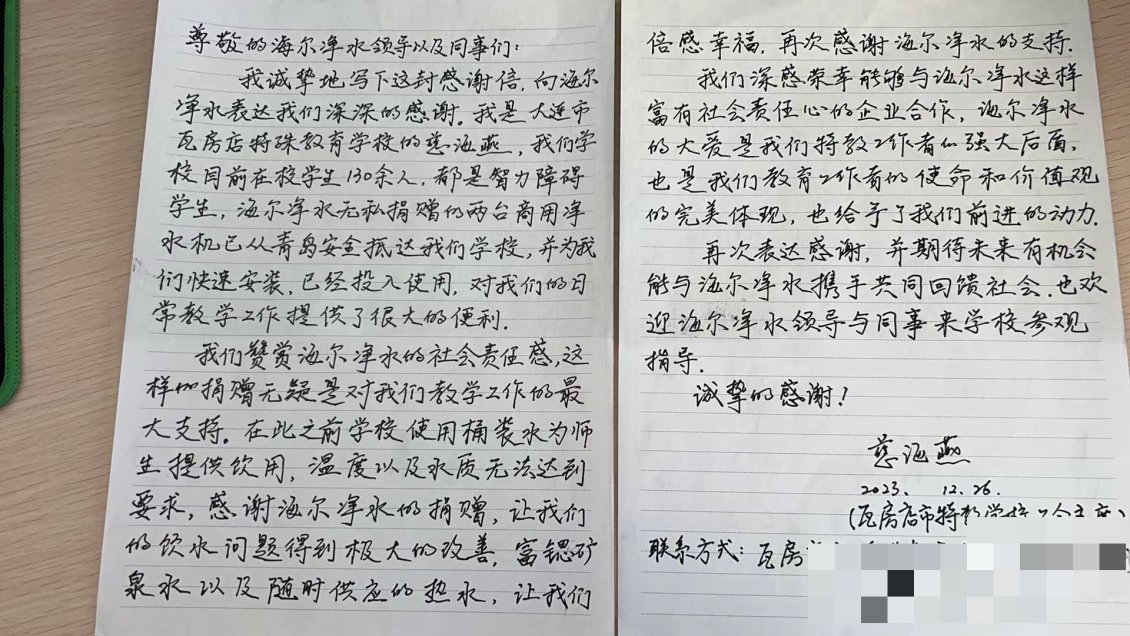 尊敬的海尔净水领导以及同事们:
我诚挚地写下这封感谢信,向海尔
净水表达我们深深的感谢。我是大连市
瓦房店特殊教育学校的慈海燕,我们学
校目前在校学生130余人,都是智力障碍
学生,海尔净水无私捐赠的两台商用净
水机已从青岛安全抵达我们学校,并为我
们快速安装,已经投入使用,对我们的日
常教学工作提供了很大的便利.
我们赞赏海尔净水的社会责任感,这
样的捐赠无疑是对我们教学工作的最
大支持。在此之前学校使用桶装水为师
生提供饮用,温度以及水质无法达到
要求,感谢海尔净水的捐赠,让我们
的饮水问题得到极大的改善,富锶矿
泉水以及随时供应的热水,让我们
倍感幸福,再次感谢海尔净水的支持.
我们深感荣幸能够与海尔净水这样
富有社会责任心的企业合作,海尔净水
的大爱是我们特教工作者的强大后盾,
也是我们教育工作者的使命和价值观
的完美体现,也给予了我们前进的动力.
再次表达感谢,并期待未来有机会
能与海尔净水携手共同回馈社会.也欢
迎海尔净水领导与同事来学校参观
指导.
诚挚的感谢!
慈海燕
2023. 12.26.
(瓦房店市特教学校
联系方式:瓦房